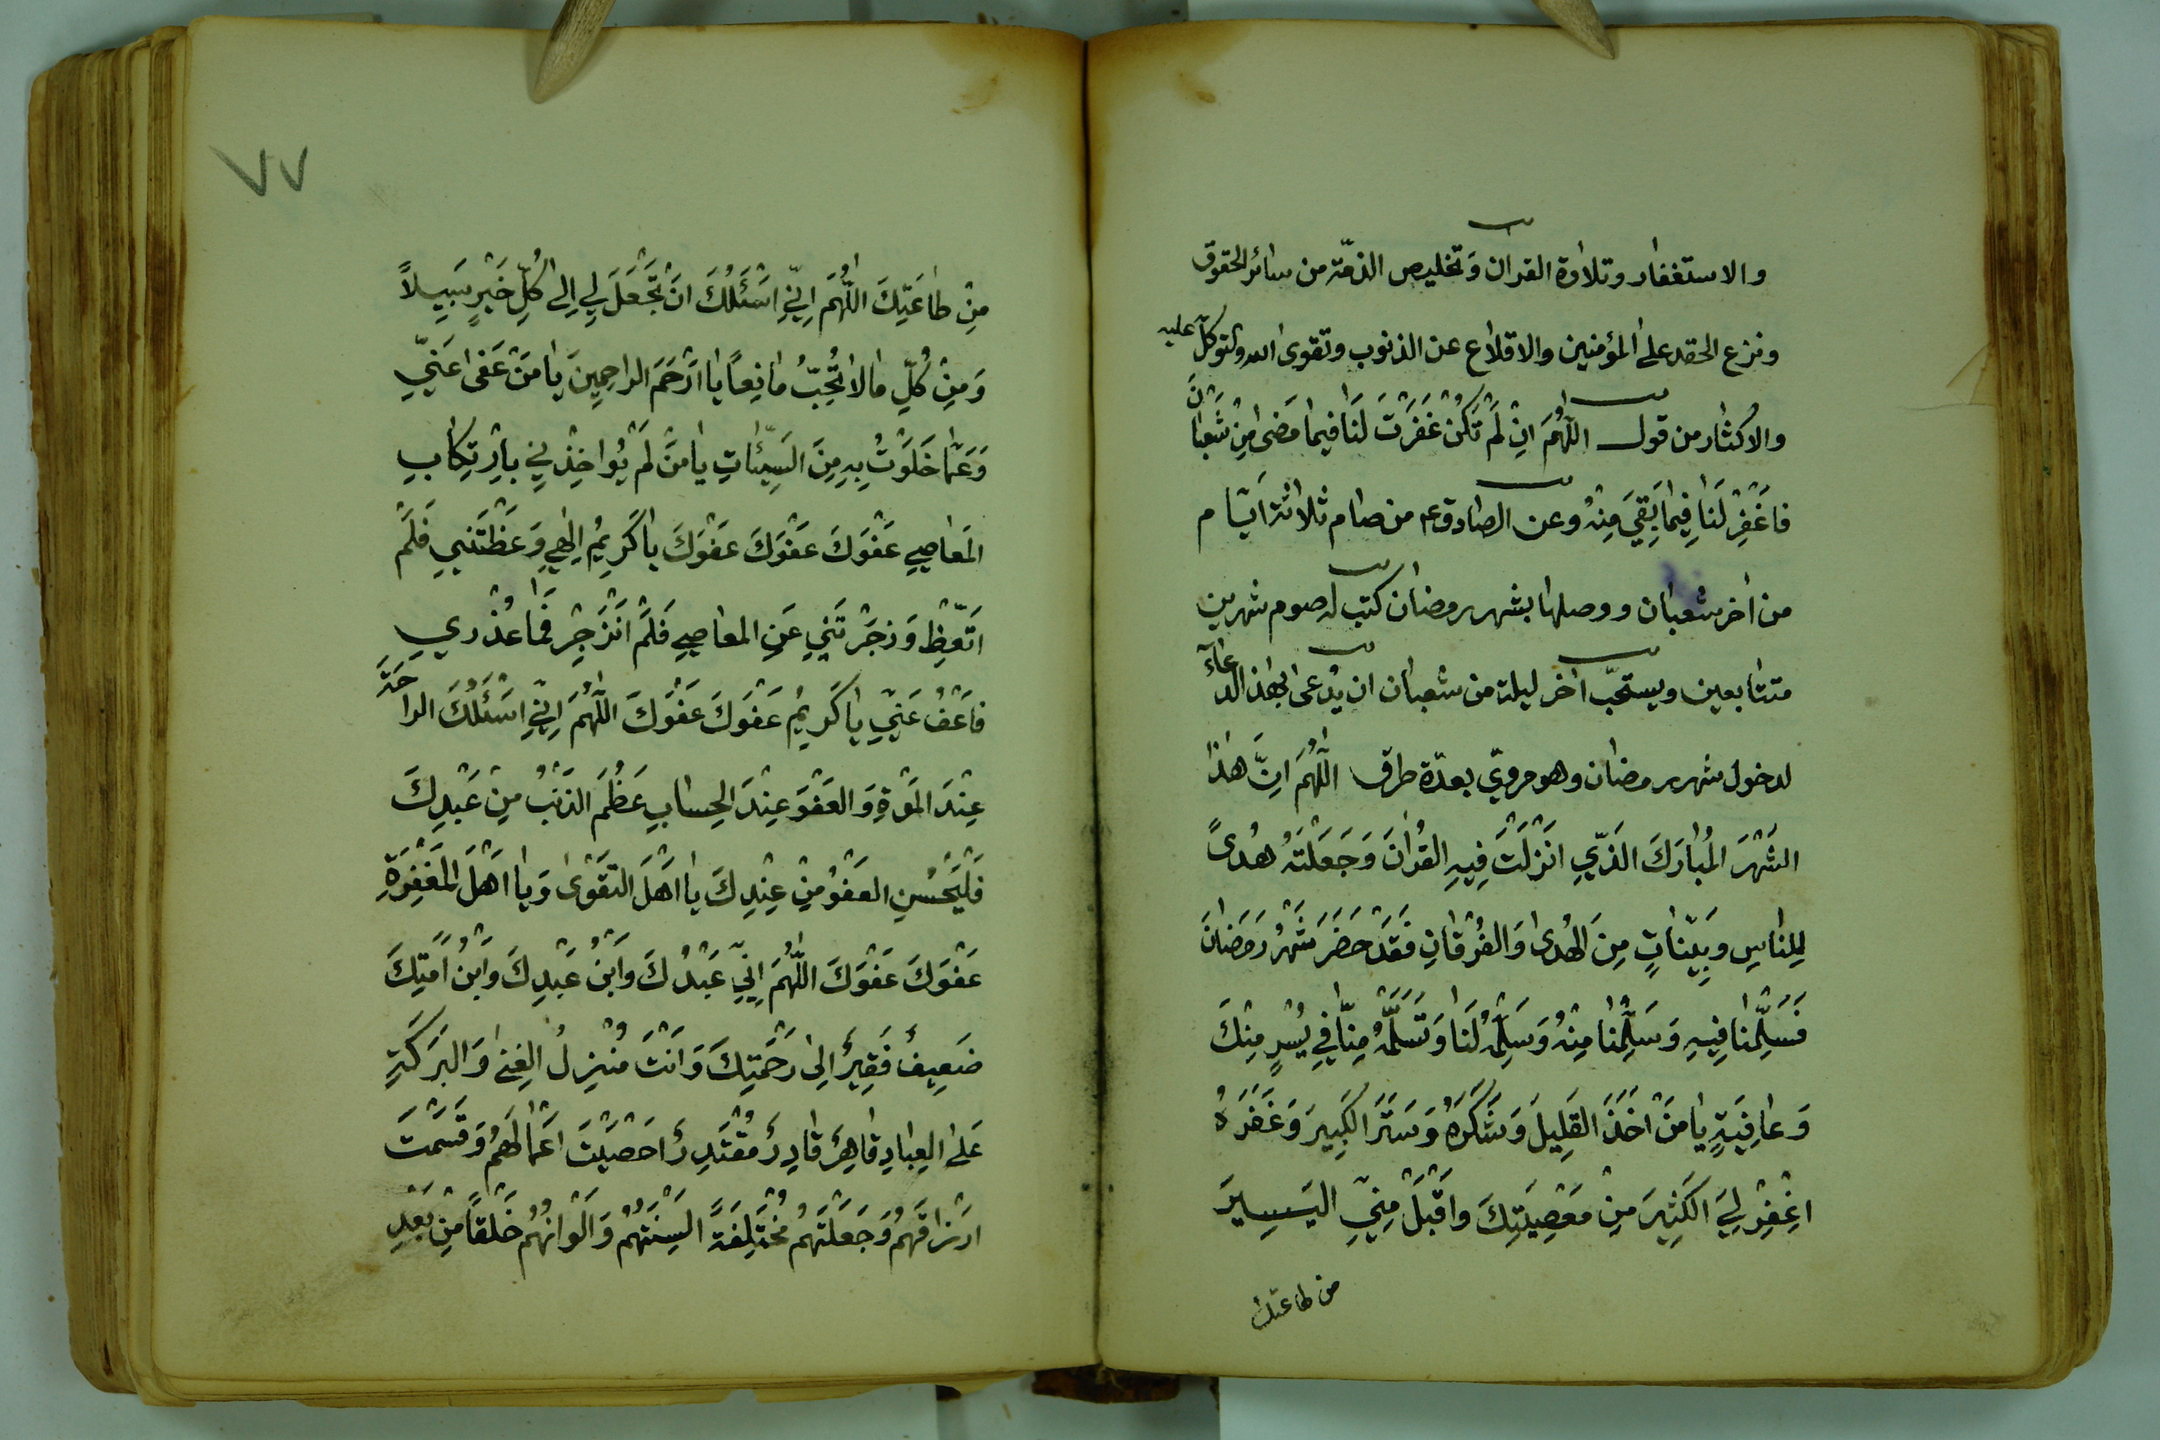 والاستغفار وتلاوة القران وَتخليص الذمّة من سائر الحقوق
ونزع الحقد على المؤمنين والاقلاع عن الذنوب وتقوى الله والتوكّل عليه
والاكثار من قول اللّٰهُمَ اِنْ لَمْ تَكُنْ غَفَرْتَ لَنٰا فيمٰا مَضىٰ مِنْ شَعْبٰانَ
فاغْفِرْ لَنٰا فِيمٰا بَقِيَ مِنْهُ وعن الصادق ع من صام ثلاثة ايّام
من اخر شعبان ووصلها بشهر رمضان كتب له صوم شهرين
متتابعين ويستحبّ اخر ليلة من شعبان ان يُدعىٰ بهذا الدعاۤء
لدخول شهر رمضان وهو مرويّ بعدّة طرق اللّٰهُمَ اِنَّ هٰذا
الشَهْرَ المُبٰارَكَ الَذّي انَزْلَتْ فِيهِ القُرٰانَ وَجَعَلْتَهُ هُدىً
لِلنٰاسِ وبَيّنٰاتٍ مِنَ الهُدىٰ وَالفُرْقٰانِ فَقَدْ حَضَرَ شَهْرُ رَمَضٰانَ
فَسَلِّمْنٰا فِيهِ وَسَلِّمْنٰا مِنْهُ وَسَلِّمْهُ لَنٰا وَتَسَلَّمْهُ مِنّٰا فِي يُسْرٍ مِنْكَ
وَعٰافِيَةٍ يٰا مَنْ اَخَذَ القَلِيلَ وَشَكَرَهُ وَسَتَرَ الكَبِيرَ وَغَفَرَهُ
اغْفِرْ لِيَ الكَثِيرَ مِنْ مَعْصِيَتِكَ واقْبَلْ مِنّيِ اليَسِيرَ
من طاعتك
٧٧
مِنْ طٰاعَتِكَ اللّٰهُمَ اِنّيِ اَسْئَلُكَ اَنْ تَجْعَلَ لِي اِلىٰ كُلِّ خَيْرٍ سَبِيلاً
وَمِنْ كُلِّ مٰا لاٰ تُحِبّ مٰانِعاً يٰا اَرْحَمَ الراحِمِينَ يٰا مَنْ عَفىٰ عَنيّ
وَعَمّٰا خَلَوْتُ بِهِ مِنَ السَيِّئٰاتِ يٰا مَنْ لَمْ يُواخِذْنِي بِاِرْتِكٰابِ
المَعٰاصِي عَفْوَكَ عَفْوَكَ عَفْوَكَ يٰا كَرِيمُ اِلٰهِي وَعَظْتَنِي فَلَمْ
اتّعِظْ وَزَجَرْتَنِي عَنِ المعٰاصِي فَلَمْ اَنْزَجِرْ فَمٰا عُذْرِي
فٰاعْفُ عَنيِّ يٰا كَرِيمُ عَفْوَكَ عَفْوَكَ اللّٰهُمَ اِنّيِ اَسْئَلُكَ الرٰاحَةَ
عِنْدَ المَوْتِ وَالعَفْوَ عِنْدَ الحِسابِ عَظُمَ الذَنْبُ مِنْ عَبْدِكَ
فَلْيَحْسُنِ العَفْوُ مِنْ عِنْدِكَ يٰا اَهْلَ التَقْوىٰ وَيٰا اَهْلَ المَغْفِرَةِ
عَفْوَكَ عَفْوَكَ اللّٰهُمَ اِنّيِ عَبْدُكَ وَابْنُ عَبْدِكَ وَابْنُ اَمَتِكَ
ضَعِيفٌ فَقِيرٌ اِلىٰ رَحْمَتِكَ وَاَنْتَ مُنْزِلُ الغِنىٰ وَالبَرَكَةِ
عَلىٰ العِبٰادِ قٰاهِرٌ قٰادِرٌ مُقْتَدِرٌ اَحْصَيْتَ اَعْمٰالَهُمْ وَقَسَمْتَ
اَرْزٰاقَهُمْ وَجَعَلْتَهُمْ مُخْتَلِفَةً اَلسِنَتَهُمْ وَالَوْانُهُمْ خَلْقاً مِنْ بَعْدِ